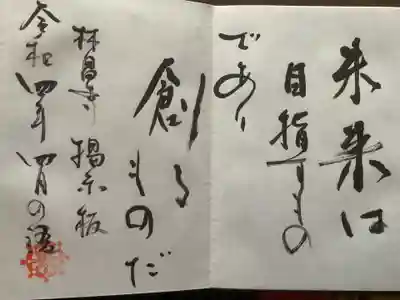 未来は
目指すもの
であり
創る
ものだ
林昌寺 掲示板
令和四年四月の語